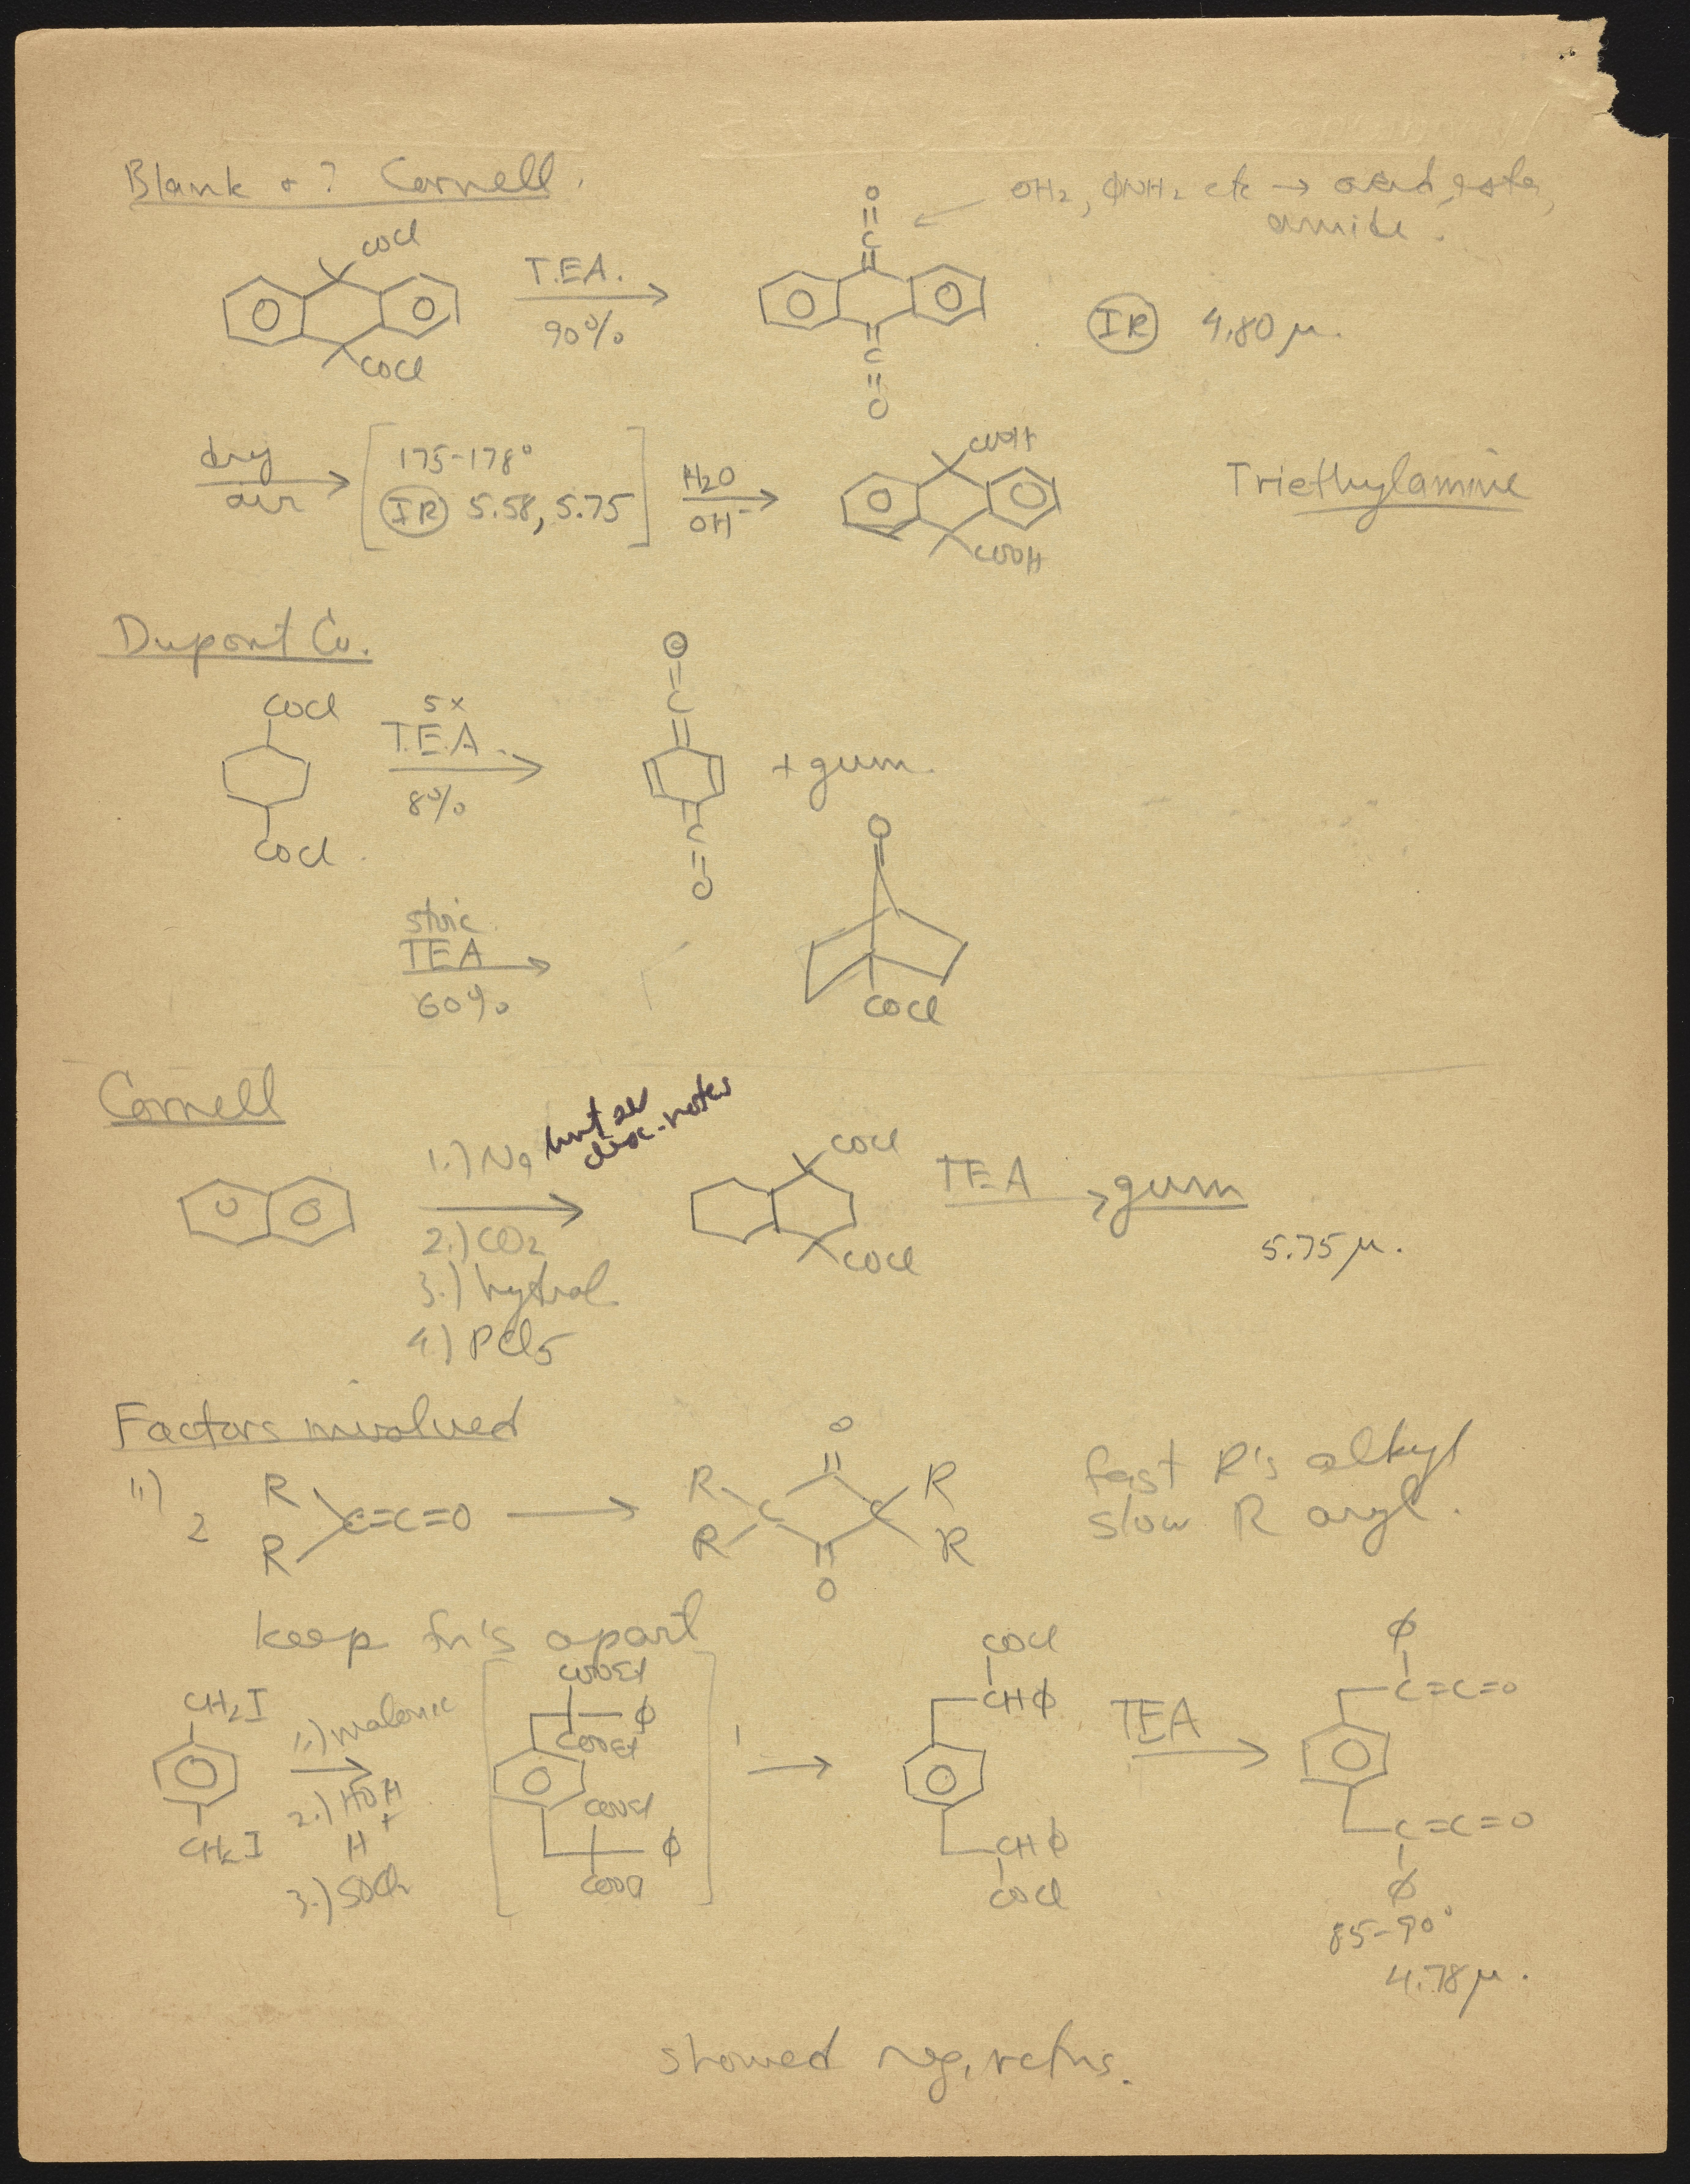 Blank + ? Cornell.
OH2, ΦNH2 etc → acid, ester,
amide.
COCl
COCl
T.E.A.
90%
O
=
C
C
=
O
IR 4.80 μ.
dry
air
175-178°
IR 5.58, 5.75
H2O
OH-
COOH
COOH
Triethylamine
Dupont Co.
COCl
COCl
5x
T.E.A.
8%
O
=
C
C
=
O
+ gum.
stoic.
TEA
60%
O
COCl
Cornell
1.) Na
disc. notes
2.) CO2
3.) hydrol.
4.) PCl5
COCl
COCl
TEA
gum
5.75 μ.
Factors involved
1.)
2
R
R
C=C=O
O
R
R
C
C
R
R
O
fast R's alkyl
slow R aryl.
keep fn's apart
CH2I
CH2I
1.) malonic
2.) HOH
H+
3.) SOCl2
COOEt
Φ
COOEt
COOEt
Φ
COCl
CHΦ
CHΦ
COCl
TEA
Φ
C=C=O
C=C=O
Φ
85-90°
4.78 μ.
showed neg. rctns.